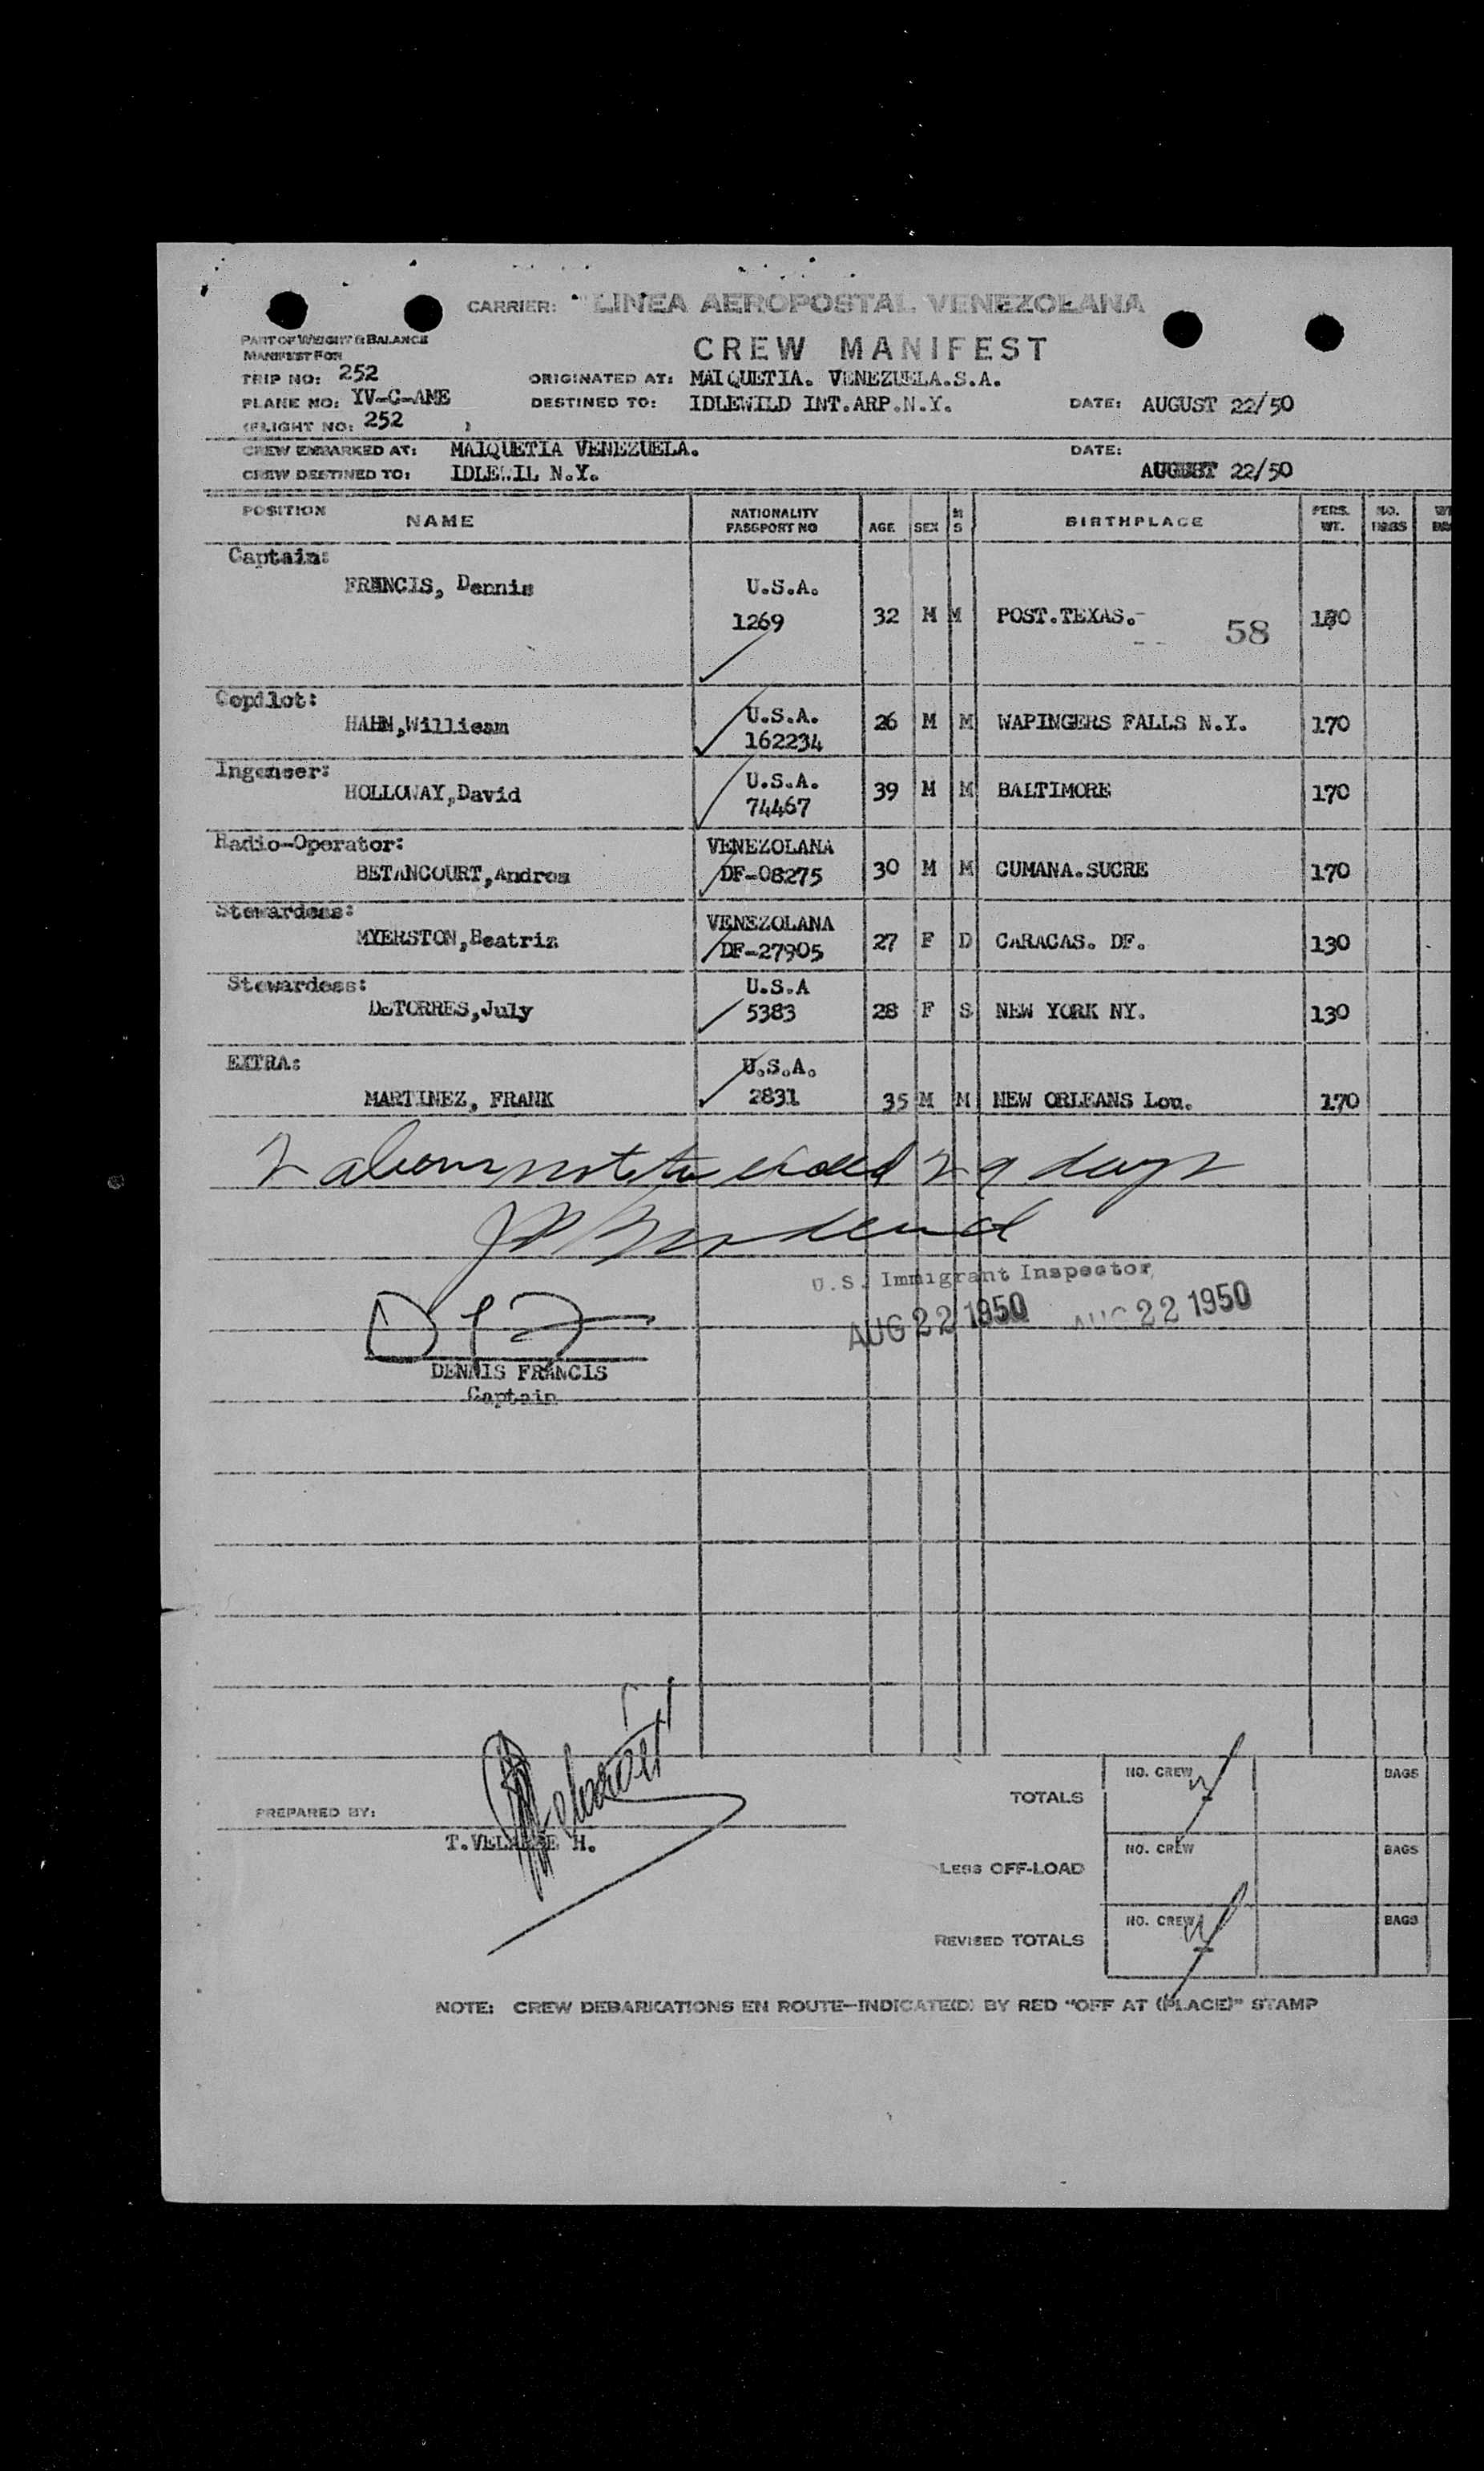 CARRIER: LINEA AEROPOSTAL VENEZOLANA
PART OF WEIGHT & BALANCE
MANIFEST FOR
CREW MANIFEST
TRIP NO: 252 ORIGINATED AT: MAIQUETIA. VENEZUELA.S.A.
PLANE NO: YV-C-AME DESTINED TO: IDLEWILD INT.ARP.N.Y. DATE: AUGUST 22/50
(FLIGHT NO: 252 )
CREW EMBARKED AT: MAIQUETIA VENEZUELA. DATE:
CREW DESTINED TO: N.Y. AUGUST 22/50
POSITION NAME NATIONALITY PASSPORT NO AGE SEX M S BIRTHPLACE PERS. WT. NO. BAGS
Captain:
FRANCIS, Dennis U.S.A.
1269 32 M M POST.TEXAS.-
58
Copilot:
HAHN,Willieam U.S.A. 26 M M WAPINGERS FALLS N.Y. 170
162234
Ingeneer:
HOLLOWAY,David U.S.A. 39 M M BALTIMORE 170
74467
Radio-Operator: VENEZOLANA
BETANCOURT,Andres DF-08275 30 M M CUMANA.SUCRE 170
Stewardess: VENEZOLANA
MYERSTON,Beatriz DF-27905 27 F D CARACAS. DF. 130
Stewardess: U.S.A
DeTORRES,July 5383 28 F S NEW YORK NY. 130
EXTRA: U.S.A.
MARTINEZ, FRANK 2831 35 M M NEW ORLEANS Lou. 170
2 not to exceed 29 days
U.S. Immigrant Inspector
AUG 22 1950 AUG 22 1950
DENNIS FRANCIS
Captain
NO. CREW BAGS
TOTALS
PREPARED BY:
T. H.
NO. CREW BAGS
LESS OFF-LOAD
NO. CREW BAGS
REVISED TOTALS
NOTE: CREW DEBARKATIONS EN ROUTE—INDICATE(D) BY RED "OFF AT (PLACE)" STAMP